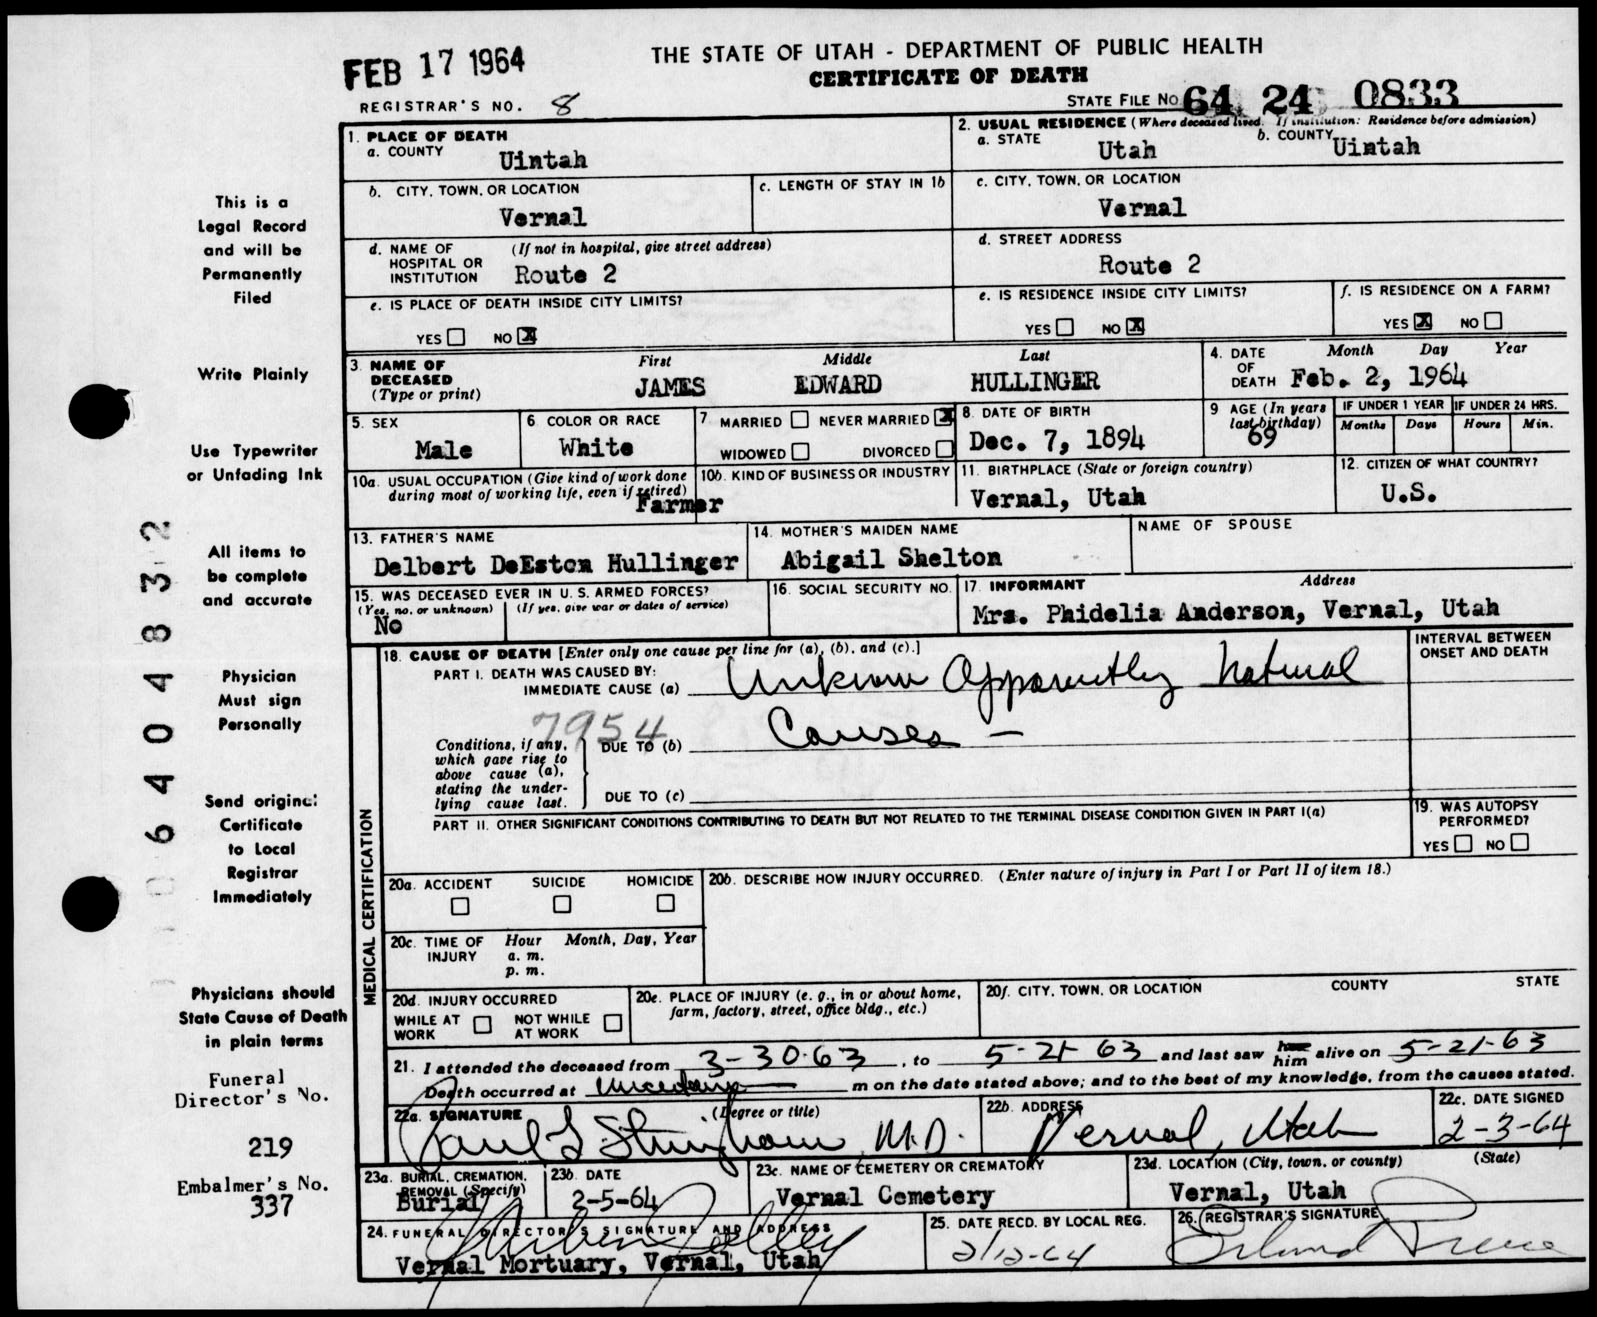 FEB 17 1964
THE STATE OF UTAH - DEPARTMENT OF PUBLIC HEALTH
CERTIFICATE OF DEATH
REGISTRAR'S NO. 8
STATE FILE NO. 64 24 0833
1. PLACE OF DEATH
a. COUNTY Uintah
2. USUAL RESIDENCE (Where deceased lived. If institution: Residence before admission)
a. STATE Utah b. COUNTY Uintah
b. CITY, TOWN, OR LOCATION Vernal
c. LENGTH OF STAY IN 1b
c. CITY, TOWN, OR LOCATION Vernal
d. NAME OF HOSPITAL OR INSTITUTION (If not in hospital, give street address) Route 2
d. STREET ADDRESS Route 2
e. IS PLACE OF DEATH INSIDE CITY LIMITS?
YES NO X
e. IS RESIDENCE INSIDE CITY LIMITS?
YES NO X
f. IS RESIDENCE ON A FARM?
YES X NO
3. NAME OF DECEASED (Type or print)
First Middle Last
JAMES EDWARD HULLINGER
4. DATE OF DEATH Month Day Year
Feb. 2, 1964
5. SEX Male
6 COLOR OR RACE White
7 MARRIED NEVER MARRIED X
WIDOWED DIVORCED
8. DATE OF BIRTH Dec. 7, 1894
9 AGE (In years last birthday) 69
IF UNDER 1 YEAR Months Days
IF UNDER 24 HRS. Hours Min.
10a. USUAL OCCUPATION (Give kind of work done during most of working life, even if retired) Farmer
10b. KIND OF BUSINESS OR INDUSTRY
11. BIRTHPLACE (State or foreign country) Vernal, Utah
12. CITIZEN OF WHAT COUNTRY? U.S.
13. FATHER'S NAME Delbert DeEston Hullinger
14. MOTHER'S MAIDEN NAME Abigail Shelton
NAME OF SPOUSE
15. WAS DECEASED EVER IN U. S. ARMED FORCES?
(Yes, no, or unknown) (If yes, give war or dates of service)
No
16. SOCIAL SECURITY NO.
17. INFORMANT Address
Mrs. Phidelia Anderson, Vernal, Utah
MEDICAL CERTIFICATION
18. CAUSE OF DEATH [Enter only one cause per line for (a), (b), and (c).]
PART I. DEATH WAS CAUSED BY:
IMMEDIATE CAUSE (a) Unknown Apparently Natural
7954
Conditions, if any, which gave rise to above cause (a), stating the underlying cause last.
DUE TO (b) Causes -
DUE TO (c)
INTERVAL BETWEEN ONSET AND DEATH
PART II. OTHER SIGNIFICANT CONDITIONS CONTRIBUTING TO DEATH BUT NOT RELATED TO THE TERMINAL DISEASE CONDITION GIVEN IN PART I(a)
19. WAS AUTOPSY PERFORMED?
YES NO
20a. ACCIDENT SUICIDE HOMICIDE
20b. DESCRIBE HOW INJURY OCCURRED. (Enter nature of injury in Part I or Part II of item 18.)
20c. TIME OF INJURY Hour Month, Day, Year
a. m.
p. m.
20d. INJURY OCCURRED
WHILE AT WORK NOT WHILE AT WORK
20e. PLACE OF INJURY (e. g., in or about home, farm, factory, street, office bldg., etc.)
20f. CITY, TOWN, OR LOCATION COUNTY STATE
21. I attended the deceased from 3-30-63, to 5-21-63 and last saw him alive on 5-21-63
Death occurred at Uncertain m on the date stated above; and to the best of my knowledge, from the causes stated.
22a. SIGNATURE (Degree or title) Paul L Stringham M.D.
22b. ADDRESS Vernal, Utah
22c. DATE SIGNED 2-3-64
23a. BURIAL, CREMATION, REMOVAL (Specify) Burial
23b DATE 2-5-64
23c. NAME OF CEMETERY OR CREMATORY Vernal Cemetery
23d. LOCATION (City, town, or county) (State) Vernal, Utah
24. FUNERAL DIRECTOR'S SIGNATURE AND ADDRESS
Vernal Mortuary, Vernal, Utah
25. DATE RECD. BY LOCAL REG. 2/12-64
26. REGISTRAR'S SIGNATURE
This is a
Legal Record
and will be
Permanently
Filed
Write Plainly
Use Typewriter
or Unfading Ink
All items to
be complete
and accurate
Physician
Must sign
Personally
Send original
Certificate
to Local
Registrar
Immediately
Physicians should
State Cause of Death
in plain terms
Funeral
Director's No.
219
Embalmer's No.
337
6404832